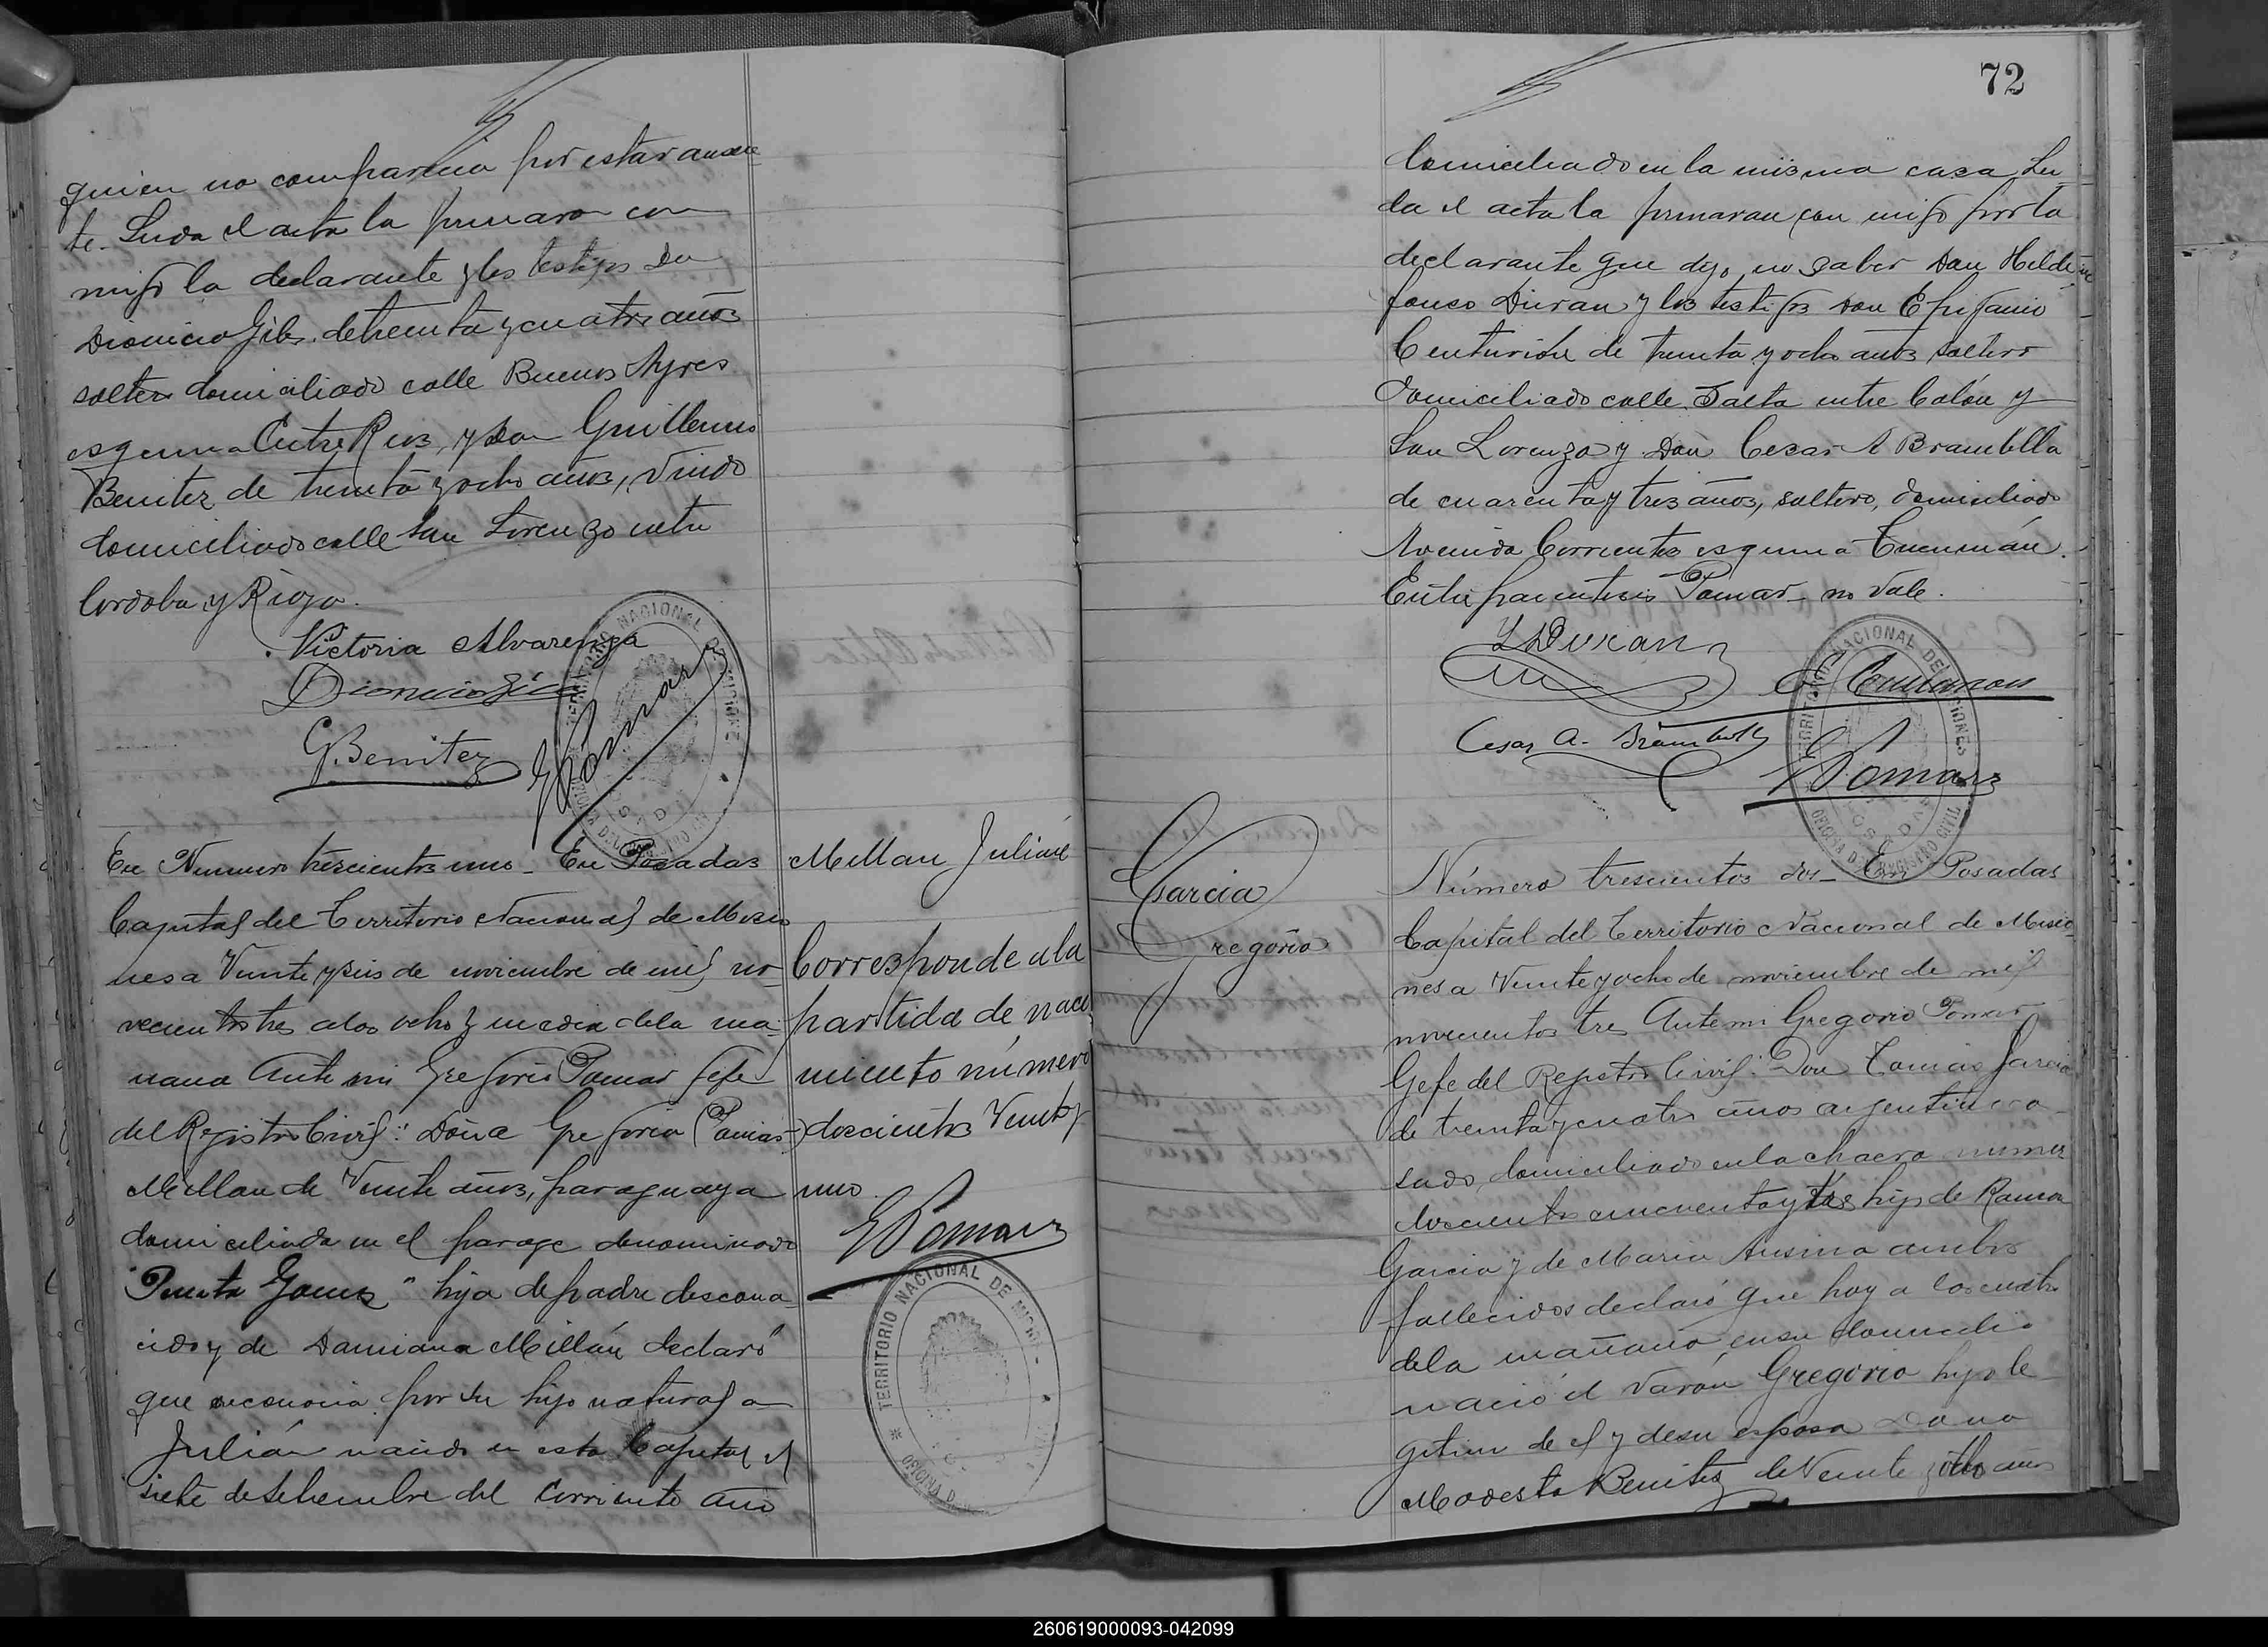 quien no comparecia por estar ausen
te. Leida el acta la firmaron con
migo la declarante y los testigos Don
Dionicio Gil de treinta y cuatro años
soltero domiciliado calle Buenos Ayres
esquina Entre Rios, y Don Guillermo
Benitez de treinta y ocho años, viudo
domiciliado calle San Lorenzo entre
Cordoba y Rioja.
Victoria Alvarenga
Dionicio Gil
G. Benitez
G Pomar
TERRITORIO NACIONAL DE MISIONES
En Numero trescientos uno_ En Posadas
Capital del Territorio Nacional de Misio
nes a Veinte y seis de noviembre de mil no_
vecientos tres a las ocho y media de la ma
ñana Ante mi Gregorio Pomar Gefe
del Registro Civil: Doña Gregoria (Pomar)
Millan de Veinte años, paraguaya
domiciliada en el parage denominado
"Punta Gomez" hija de padre descono_
cido y de Damiana Millán declaró
que reconocia por su hijo natural a
Julián nacido en esta Capital el
siete de Setiembre del corriente año
Millan Julián
Corresponde a la
partida de naci
miento número
doscientos Veinty
uno.
G Pomar
TERRITORIO NACIONAL DE MISIONES
72
domiciliado en la misma casa Lei
da el acta la firmaron con migo por la
declarante que dijo no saber Don Ilde
fonso Duran y los testigos Don Epifanio
Centurión de treinta y ocho años soltero
domiciliado calle Salta entre Colón y
San Lorenzo y Don Cesar A Brambilla
de cuarenta y tres años, soltero, domiciliado
Avenida Corrientes esquina Tucumán.
Entre parentesis Pomar_ no vale.
Y Duran
E Centurion
Cesar A. Brambilla
G Pomar
TERRITORIO NACIONAL DE MISIONES
OFICINA DEL REGISTRO CIVIL
POSADAS
Garcia
Gregorio
Número trescientos dos_ En Posadas
Capital del Territorio Nacional de Misio_
nes a Veinte y ocho de noviembre de mil
novecientos tres Ante mi Gregorio Pomar
Gefe del Registro Civil: Don Tomás Garcia
de treinta y cuatro años argentino ca_
sado, domiciliado en la chacra numero
doscientos cincuenta y tres hijo de Ramon
Garcia y de Maria Ausina ambos
fallecidos declaró que hoy a las cuatro
de la mañana en su domicilio
nació el varón Gregorio hijo le_
gitimo de el y de su esposa Dona
Modesta Benitez de Veinte y ocho años